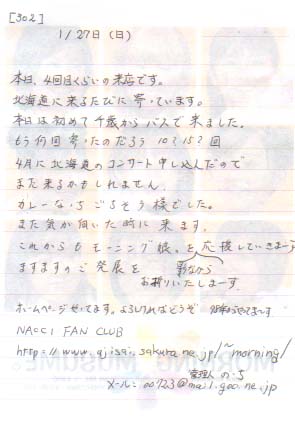 [302]
1/27日(日)
本日、4回目くらいの来店です。
北海道に来るたびに寄っています。
本日は初めて千歳からバスで来ました。
もう何回寄ったのだろう 10?15?回
4月に北海道のコンサート申し込んだので
また来るかもしれません。
カレーな いちごちそう様でした。
また気が向いた時に来ます。
これからもモーニング娘。を応援していきまーす
ますますのご発展を 影ながら
お祈りいたしまーす。
ホームページもってます。よろしければどうぞ
NACCI FAN CLUB
http://www.ajisai.sakura.ne.jp/~morning/
管理人 の・5
メール:oo723@mail.goo.ne.jp
MORNING MUSUME。